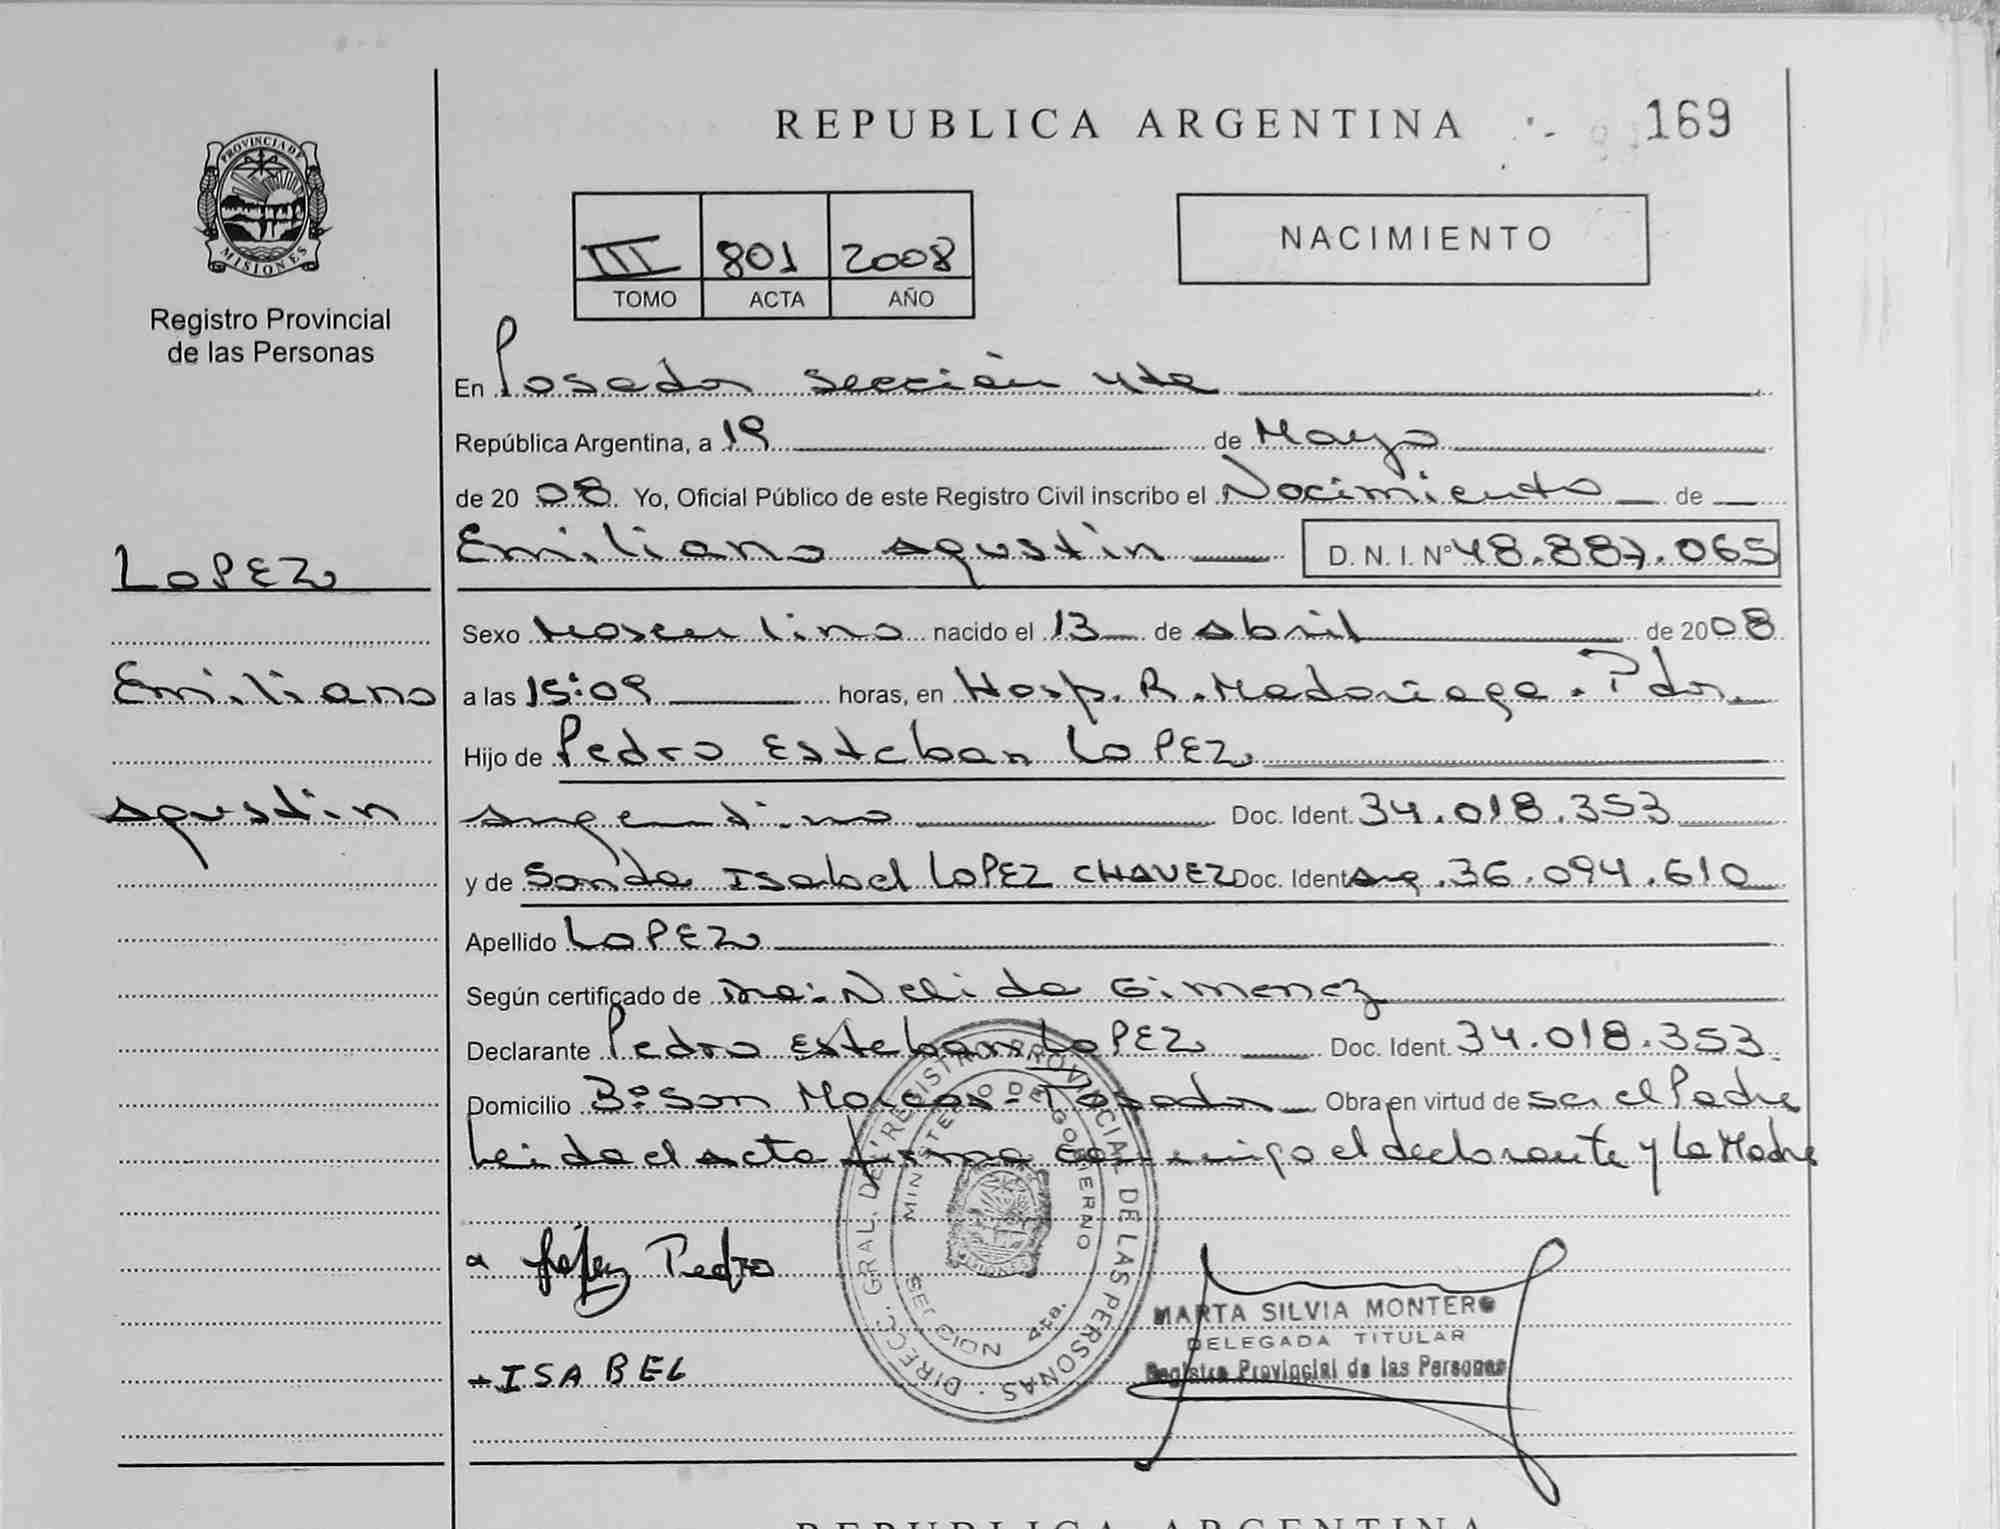 REPUBLICA ARGENTINA
169
PROVINCIA DE
MISIONES
Registro Provincial
de las Personas
III 801 2008
TOMO ACTA AÑO
NACIMIENTO
En Posadas sección 4ta
República Argentina, a 19 de Mayo
de 20 08. Yo, Oficial Público de este Registro Civil inscribo el Nacimiento de
LOPEZ
Emiliano Agustín D. N. I. Nº 48.887.065
Sexo Masculino nacido el 13 de Abril de 2008
Emiliano
a las 15:09 horas, en Hosp. R. Madariaga. Pdas.
Hijo de Pedro Esteban LOPEZ
Agustín
Argentino Doc. Ident. 34.018.353
y de Sanda Isabel LOPEZ CHAVEZ Doc. Ident Arg. 36.094.610
Apellido LOPEZ
Según certificado de Dra: Nelida Gimenez
Declarante Pedro Esteban LOPEZ Doc. Ident. 34.018.353
Domicilio Bº San Marcos - Posadas Obra en virtud de ser el Padre
Leida el acta firma conmigo el declarante y la Madre
López Pedro
ISABEL
DIRECC. GRAL. DEL REGISTRO PROVINCIAL DE LAS PERSONAS
MINISTERIO DE GOBIERNO
SECCION 4ta.
MISIONES
MARTA SILVIA MONTERO
DELEGADA TITULAR
Registro Provincial de las Personas
REPUBLICA ARGENTINA